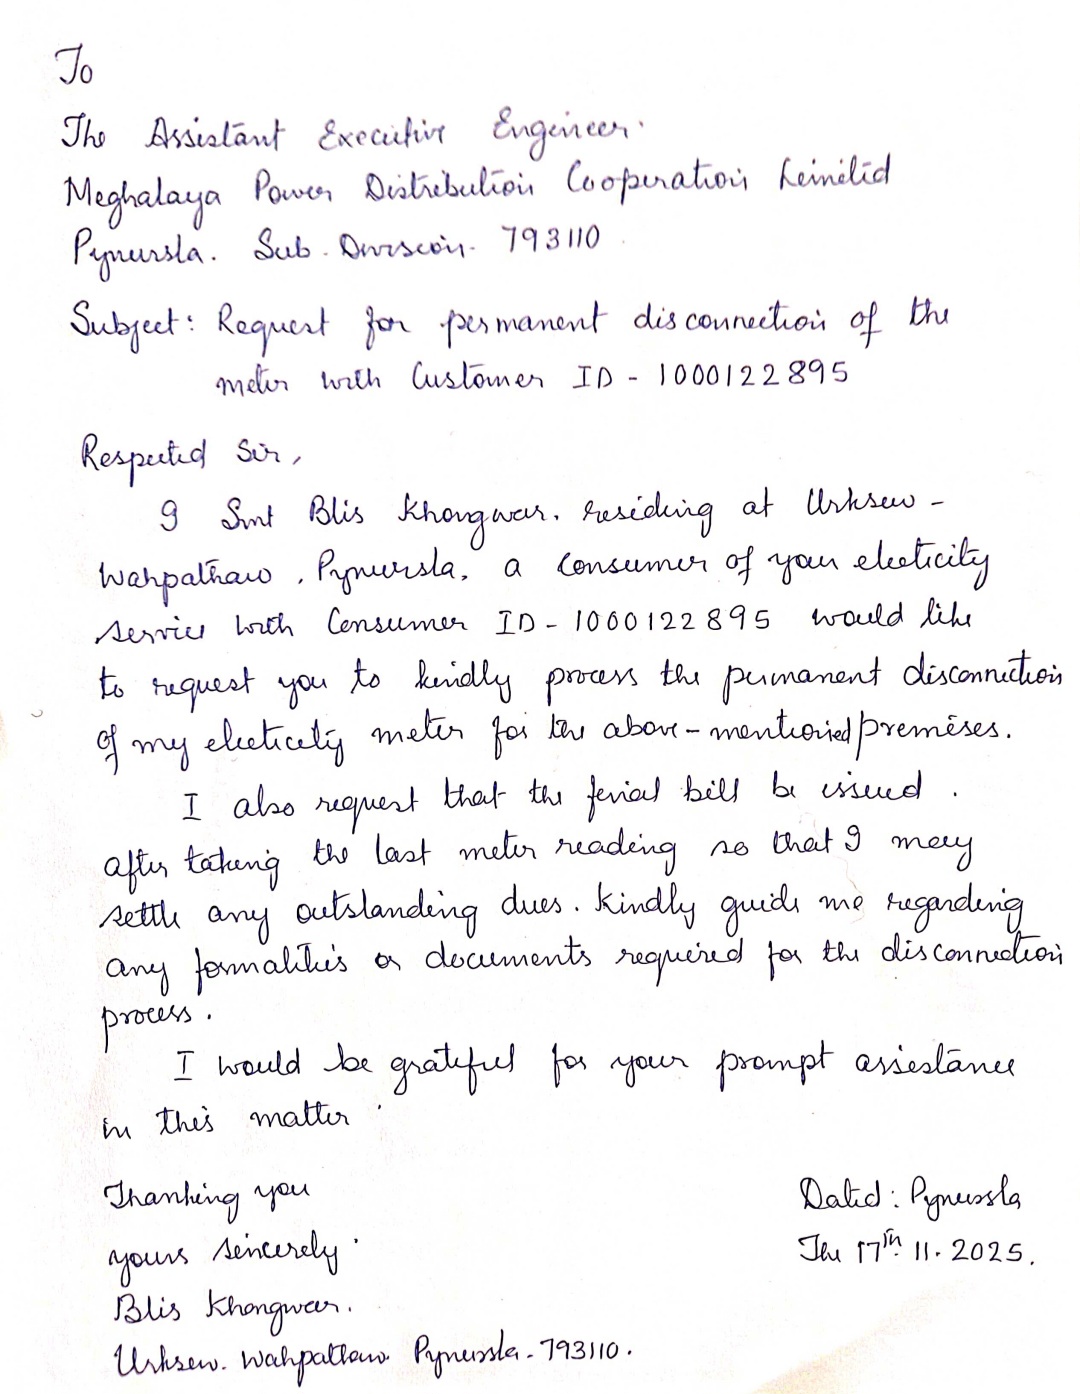 To
The Assistant Executive Engineer.
Meghalaya Power Distribution Cooperation Limited
Pynursla. Sub. Division. 793110
Subject: Request for permanent disconnection of the
meter with Customer ID - 1000122895
Respected Sir,
I Smt Blis Khongwar, residing at Urksew -
Wahpathaw, Pynursla, a consumer of your electicity
service with Consumer ID - 1000122895 would like
to request you to kindly process the permanent disconnection
of my electicity meter for the above-mentioned premises.
I also request that the final bill be issued.
after taking the last meter reading so that I may
settle any outstanding dues. Kindly guide me regarding
any formalities or documents required for the disconnection
process.
I would be grateful for your prompt assistance
in this matter.
Thanking you
yours sincerely.
Blis Khongwar.
Urksew. Wahpathaw Pynursla - 793110.
Dated: Pynursla
The 17th. 11. 2025.